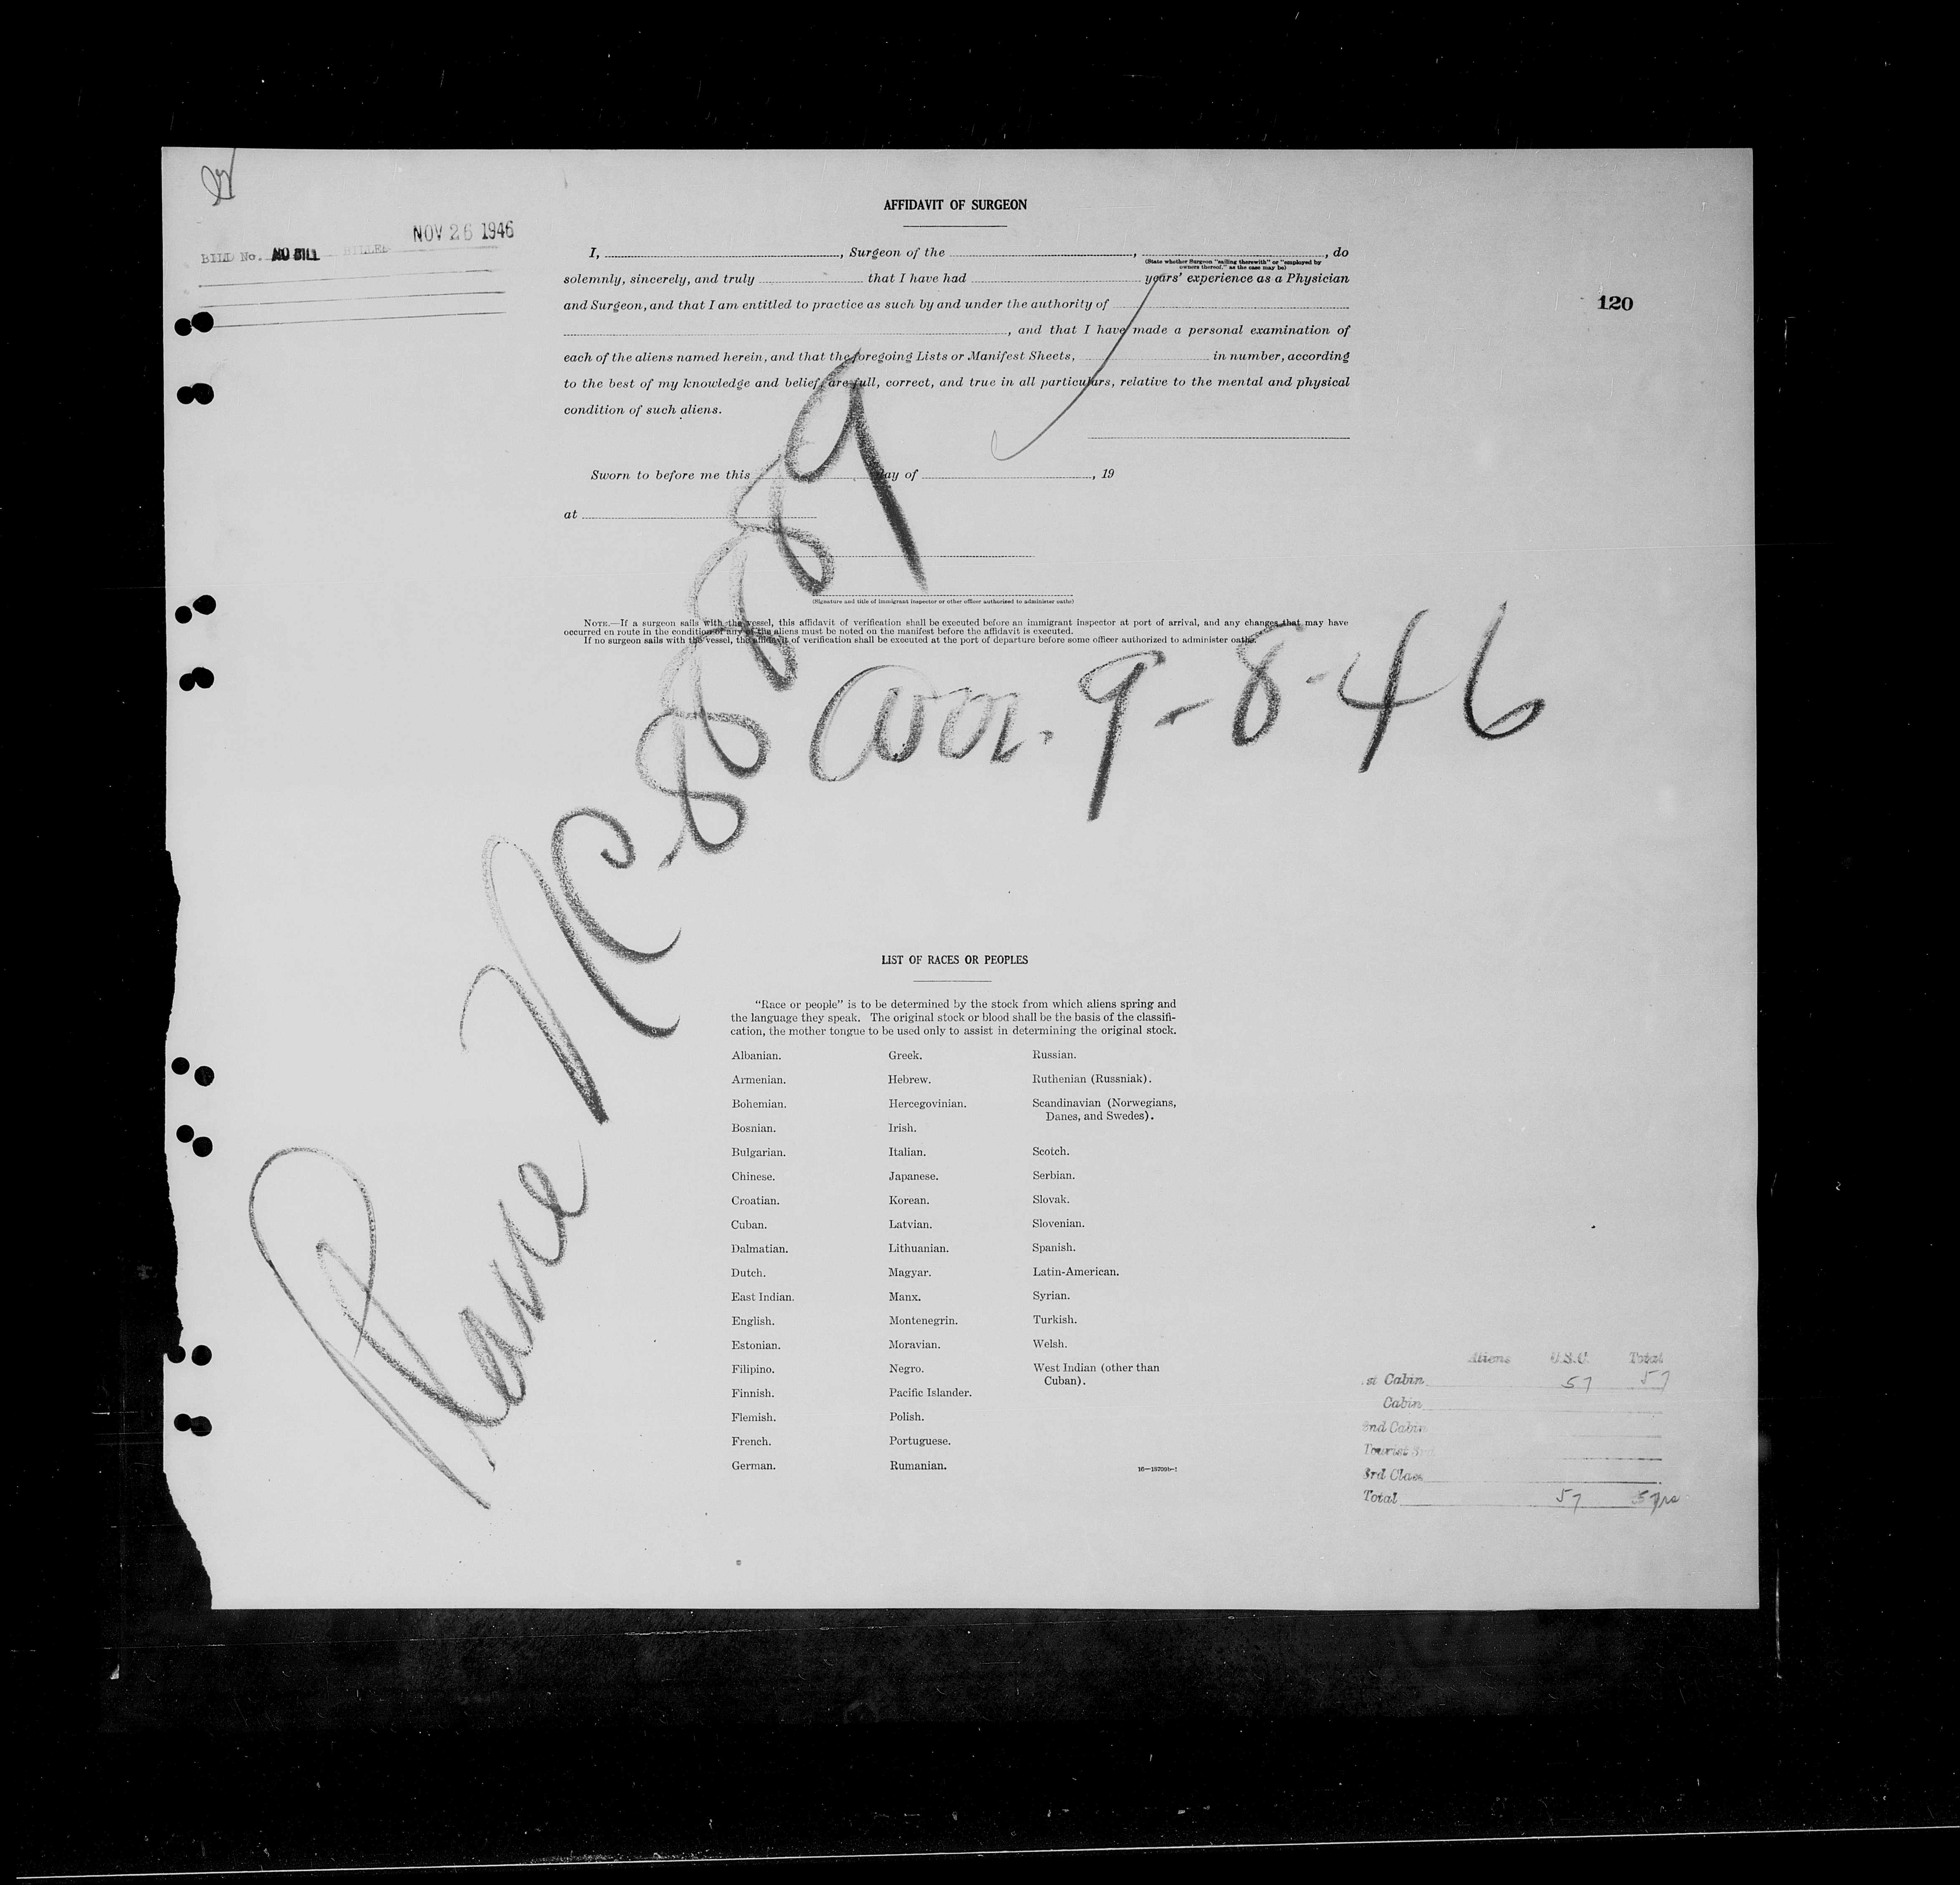 AFFIDAVIT OF SURGEON
NOV 26 1946
BILL No. NO BILL BILLED
120
I, , Surgeon of the , , do
(State whether Surgeon "sailing therewith" or "employed by
owners thereof," as the case may be)
solemnly, sincerely, and truly that I have had years' experience as a Physician
and Surgeon, and that I am entitled to practice as such by and under the authority of
, and that I have made a personal examination of
each of the aliens named herein, and that the foregoing Lists or Manifest Sheets, in number, according
to the best of my knowledge and belief, are full, correct, and true in all particulars, relative to the mental and physical
condition of such aliens.
Sworn to before me this day of , 19
at
(Signature and title of immigrant inspector or other officer authorized to administer oaths)
NOTE.—If a surgeon sails with the vessel, this affidavit of verification shall be executed before an immigrant inspector at port of arrival, and any changes that may have
occurred en route in the condition of any of the aliens must be noted on the manifest before the affidavit is executed.
If no surgeon sails with the vessel, the affidavit of verification shall be executed at the port of departure before some officer authorized to administer oaths.
Plane NC-88889
9-8-46
LIST OF RACES OR PEOPLES
"Race or people" is to be determined by the stock from which aliens spring and
the language they speak. The original stock or blood shall be the basis of the classifi-
cation, the mother tongue to be used only to assist in determining the original stock.
Albanian. Greek. Russian.
Armenian. Hebrew. Ruthenian (Russniak).
Bohemian. Hercegovinian. Scandinavian (Norwegians,
Danes, and Swedes).
Bosnian. Irish.
Bulgarian. Italian. Scotch.
Chinese. Japanese. Serbian.
Croatian. Korean. Slovak.
Cuban. Latvian. Slovenian.
Dalmatian. Lithuanian. Spanish.
Dutch. Magyar. Latin-American.
East Indian. Manx. Syrian.
English. Montenegrin. Turkish.
Estonian. Moravian. Welsh.
Filipino. Negro. West Indian (other than
Cuban).
Finnish. Pacific Islander.
Flemish. Polish.
French. Portuguese.
German. Rumanian.
Aliens U.S.C. Total
st Cabin 57 57
Cabin
2nd Cabin
Tourist 3rd
3rd Class
Total 57 57